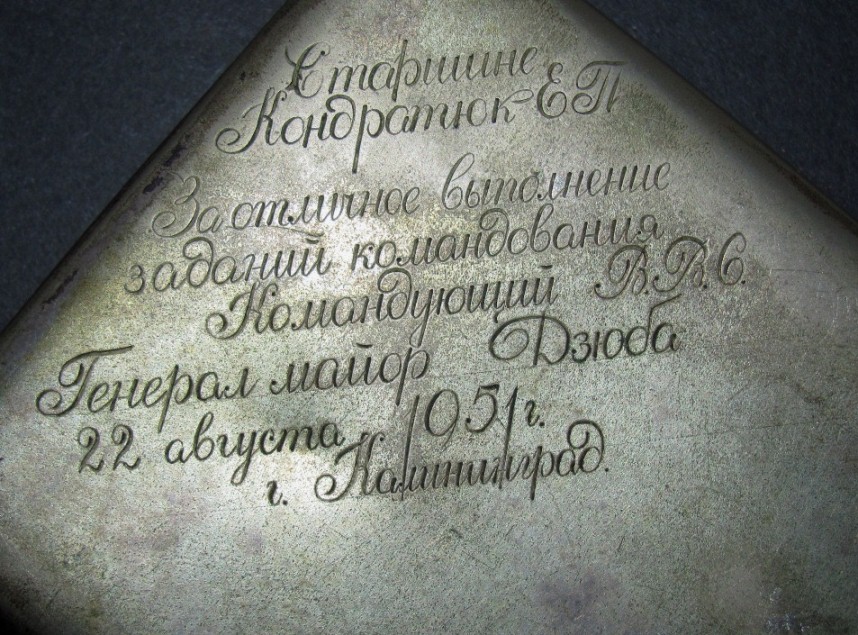 Старшине
Кондратюк Е П
За отличное выполнение
заданий командования
Командующий В.В.С.
Генерал майор Дзюба
22 августа 1951 г.
г. Калининград.